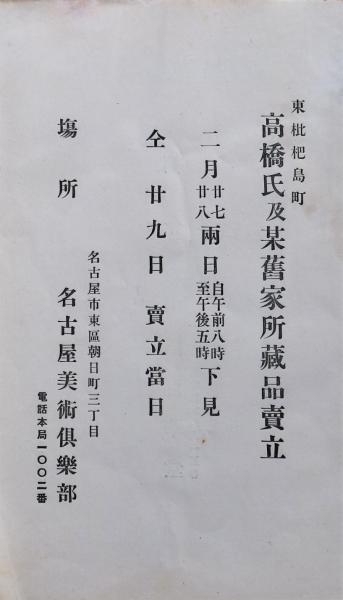 東枇杷島町
高橋氏及某舊家所藏品賣立
二月廿七廿八兩日自午前八時至午後五時下見
仝廿九日賣立當日
名古屋市東區朝日町三丁目
場所 名古屋美術俱樂部
電話本局一〇〇二番